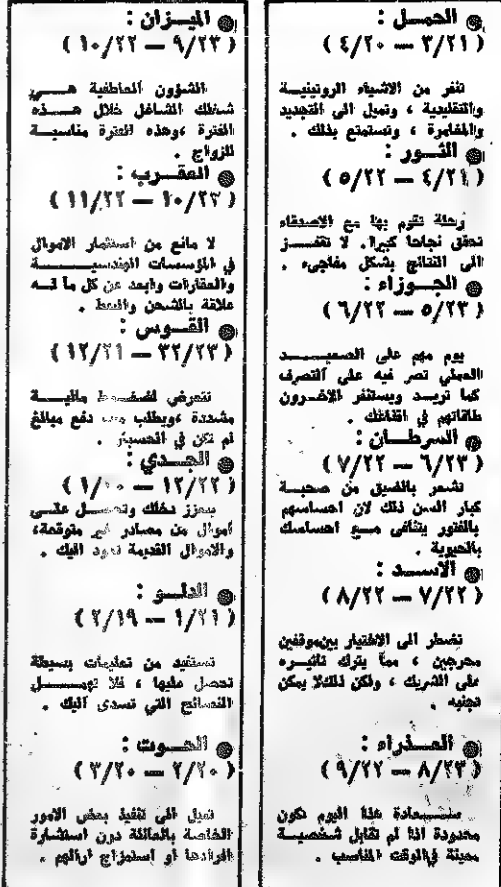 الحمـــل :
( ٣/٢١ — ٤/٢٠ )
تنفر من الاشياء الروتينيـــة
والتقليدية ، وتميل الى التجديد
والمغامرة ، وتستمتع بذلك .
الثــور :
( ٤/٢١ — ٥/٢٢ )
رحلة تقوم بها مع الاصدقاء
تحقق نجاحا كبيرا . لا تقفـــز
الى النتائج بشكل مفاجىء .
الجــوزاء :
( ٥/٢٣ — ٦/٢٢ )
يوم مهم على الصعيـــــد
العملي تصر فيه على التصرف
كما تريـــد ويستنفر الاخـــرون
طاقاتهم في اقناعك .
السرطـــان :
( ٦/٢٣ — ٧/٢٢ )
تشعر بالضيق من صحبـــة
كبار السن ذلك لان احساسهم
بالفتور يتنافى مـــع احساسك
بالحيوية .
الاســـد :
( ٧/٢٢ — ٨/٢٢ )
تضطر الى الاختيار بين موقفين
محرجين ، مما يترك تأثيـــره
على الشريك ، ولكن ذلك لا يمكن
تجنبه .
العـــذراء :
( ٨/٢٣ — ٩/٢٢ )
ســـعادة هذا اليوم تكون
محدودة اذا لم تقابل شخصيـــة
معينة في الوقت المناسب .
الميـــزان :
( ٩/٢٣ — ١٠/٢٢ )
الشؤون العاطفية هـــي
شغلك الشاغل خلال هـــذه
الفترة ، وهذه الفترة مناسبـــة
للزواج .
العقـــرب :
( ١٠/٢٣ — ١١/٢٢ )
لا مانع من استثمار الاموال
في المؤسسات الهندسيـــــة
والعقارات وابعد عن كل ما لـــه
علاقة بالشحن والنفط .
القـــوس :
( ٣٢/٢٣ — ١٢/٢١ )
تتعرض لضغـــوط ماليـــة
مشددة ، ويطلب منك دفع مبالغ
لم تكن في الحسبان .
الجـــدي :
( ١٢/٢٢ — ١/٢٠ )
يعزز دخلك وتحصـــل علـــى
أموال من مصادر غير متوقعة ،
والاموال القديمة تعود اليك .
الدلـــو :
( ١/٢١ — ٢/١٩ )
تستفيد من تعليمات بسيطة
تحصل عليها ، فلا تهمـــــل
النصائح التي تسدى اليك .
الحـــوت :
( ٢/٢٠ — ٣/٢٠ )
تميل الى تنفيذ بعض الامور
الخاصة بالعائلة دون استشارة
افرادها او استمزاج ارائهم .